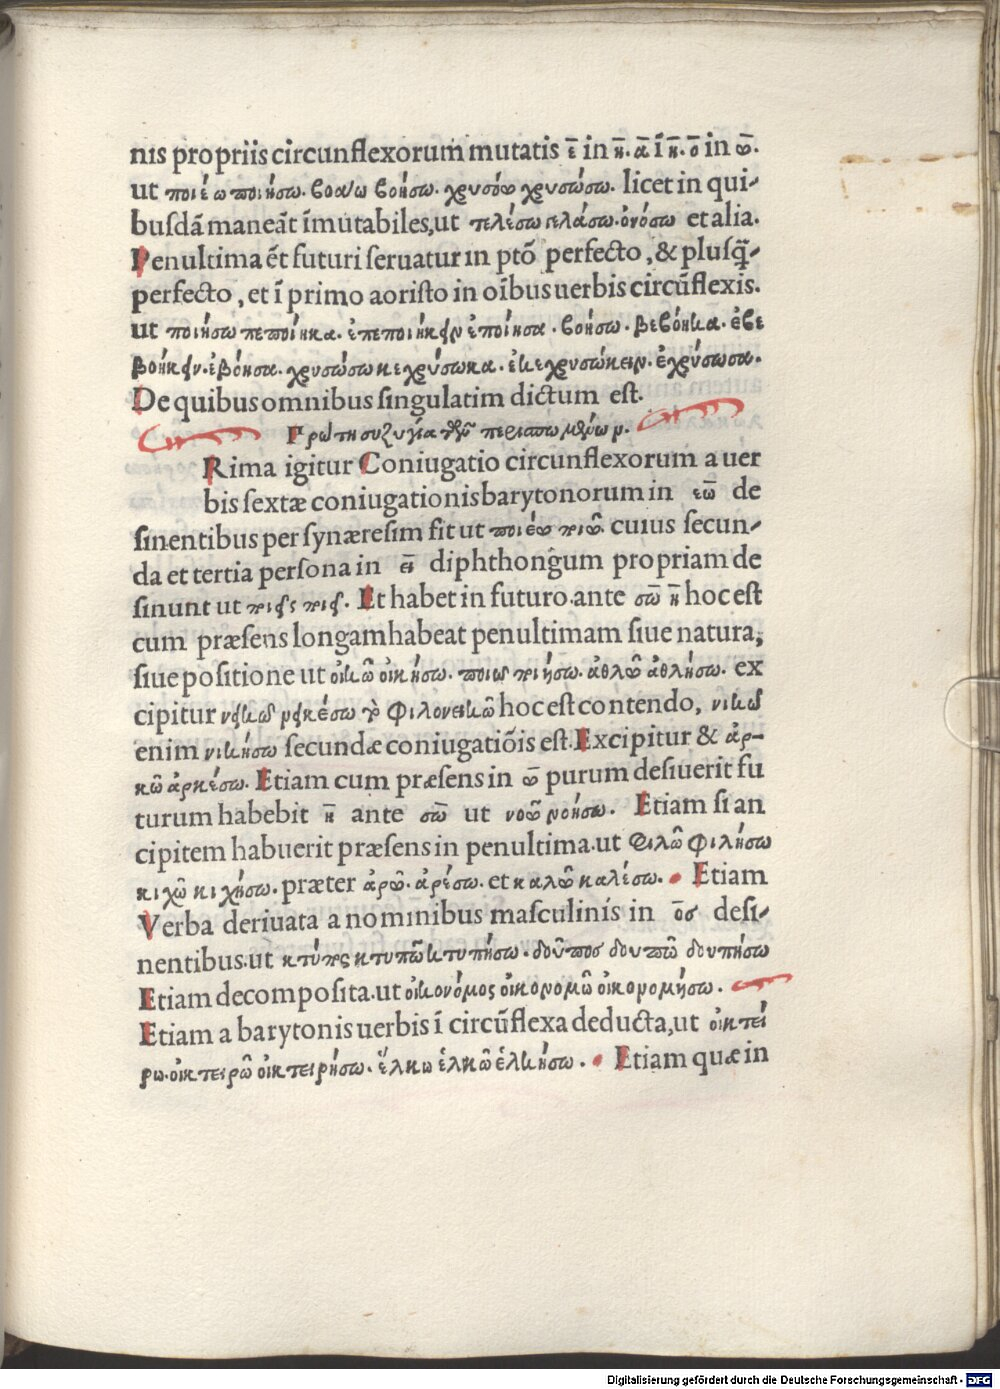 nis propriis circunflexorum mutatis ε̄ in η̄. ᾱ ī η̄. ο̄ in ω̄.
ut ποιέω ποιήσω. βοάω βοήσω. χρυσόω χρυσώσω. licet in qui-
busdā maneāt īmutabiles, ut τελέσω γελάσω. ὀνόσω et alia.
Penultima ēt futuri seruatur in ptō perfecto, & plusq̄-
perfecto, et ī primo aoristo in oībus uerbis circūflexis.
ut ποιήσω πεποίηκα. ἐπεποιήκειν ἐποίησα. βοήσω. βεβόηκα. ἐβε
βοήκειν. ἐβόησα. χρυσώσω κεχρύσωκα. ἐκεχρυσώκειν. ἐχρύσωσα.
De quibus omnibus singulatim dictum est.
Πρώτη συζυγία τῶν περισπωμένων ρ.
Rima igitur Coniugatio circunflexorum a uer
bis sextæ coniugationis barytonorum in εω̄ de
sinentibus per synæresim fit ut ποιέω ποιῶ. cuius secun-
da et tertia persona in εῑ diphthongum propriam de
sinunt ut ποιεῖς ποιεῖ. Et habet in futuro ante σω̄ η̄ hoc est
cum præsens longam habeat penultimam siue natura,
siue positione ut οἰκῶ οἰκήσω. ποιῶ ποιήσω. ἀθλῶ ἀθλήσω. ex
cipitur νεικῶ νεικέσω τὸ φιλονεικῶ hoc est contendo, νικῶ
enim νικήσω secundæ coniugatiōis est. Excipitur & ἀρ-
κῶ ἀρκέσω. Etiam cum præsens in ω̄ purum desiuerit fu
turum habebit η̄ ante σω̄ ut νοῶ νοήσω. Etiam si an
cipitem habuerit præsens in penultima. ut φιλῶ φιλήσω
κιχῶ κιχήσω. præter ἀρῶ. ἀρέσω. et καλῶ καλέσω. Etiam
Verba deriuata a nominibus masculinis in ος̄ desi-
nentibus. ut κτύπος κτυπῶ κτυπήσω. δοῦπος δουπῶ δουπήσω
Etiam decomposita. ut οἰκονόμος οἰκονομῶ οἰκονομήσω.
Etiam a barytonis uerbis ī circūflexa deducta, ut οἰκτεί
ρω. οἰκτειρῶ οἰκτειρήσω. ἕλκω ἑλκῶ ἑλκήσω. Etiam quæ in
Digitalisierung gefördert durch die Deutsche Forschungsgemeinschaft - DFG